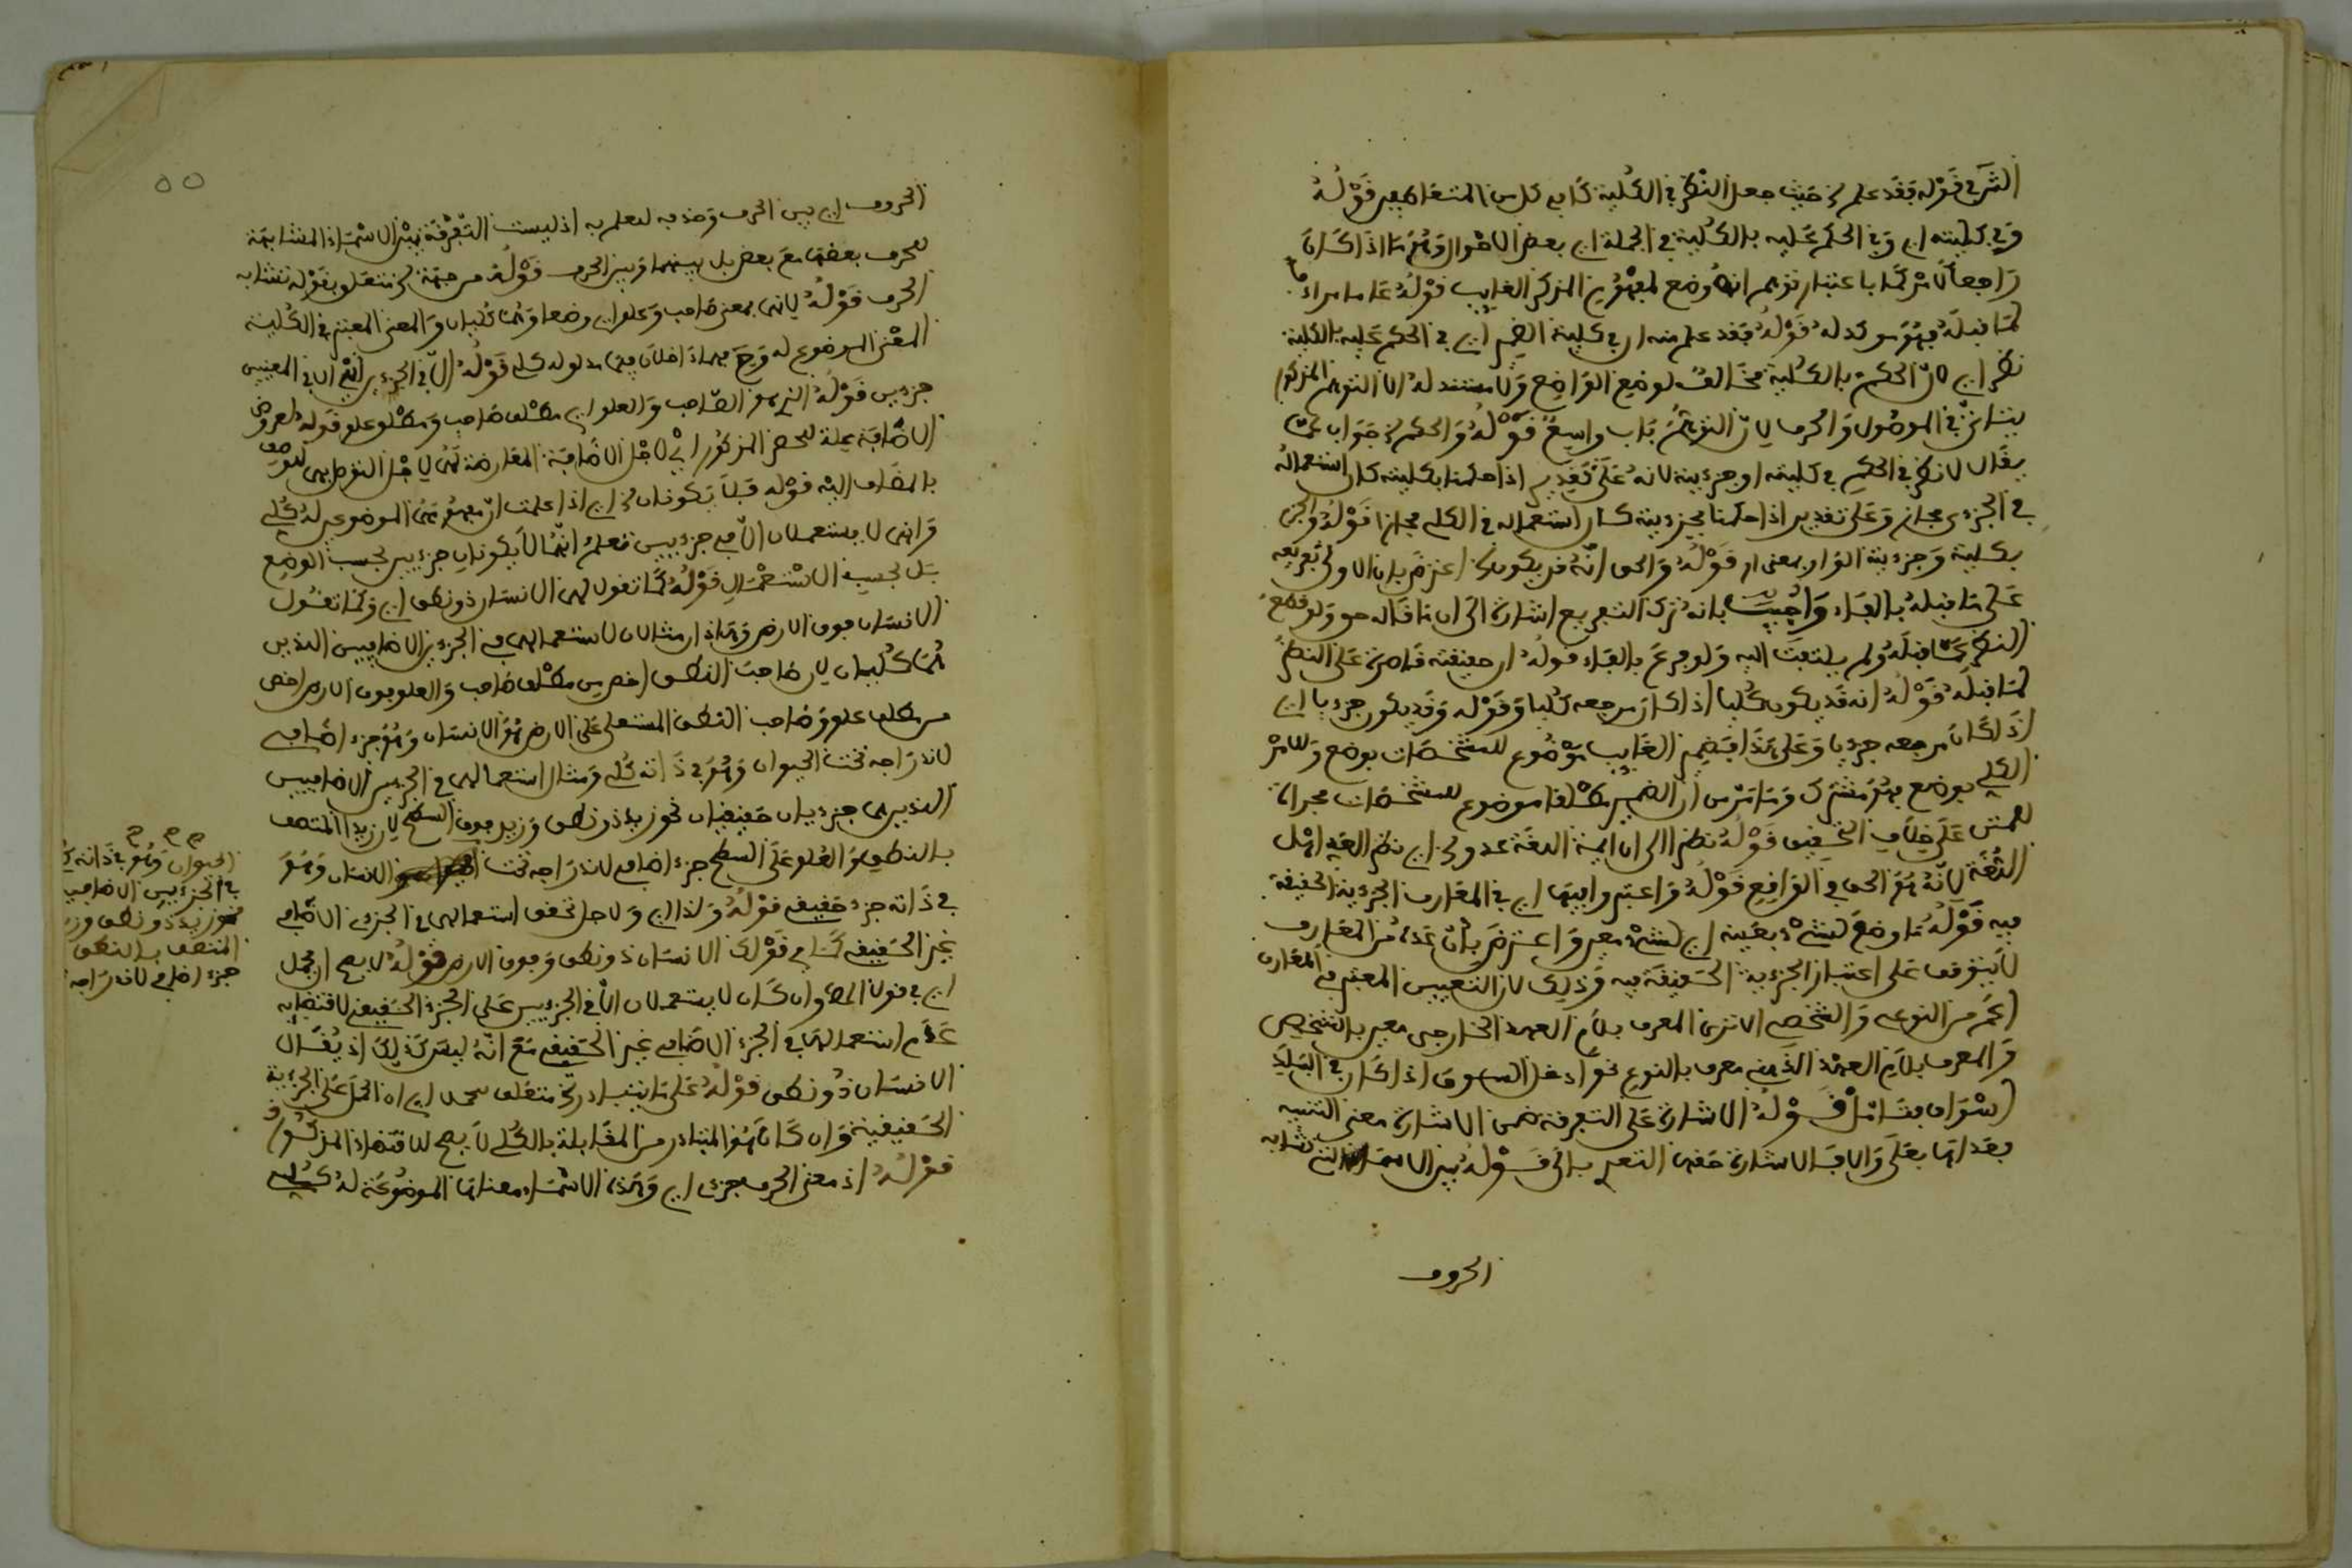 الشرح قوله فقد علم من حيث جعل النظر في الكلية كما في كلام المتعاطيين قوله
وفي كليته اي وفي الحكم عليه بالكلية في الجملة اي بعض الاحوال وهو ما اذا كان
راجعا لامر كما باعتبار توهم انه وضع لمفهوم المذكر الغايب قوله عاما مراد
لما قبله فهو موكد له قوله فقد علم منه ان في كلية الضمير اي في الحكم عليه بالكلية
نظر اي لان الحكم بالكلية مخالف لوضع الواضع ولا مستند له الا التوهم المذكور
يتاتى في الموصول والحرف لان التوهم باب واسع قوله والحكم جواب عما
يقال لا نظر في الحكم في كليته او جزءيته لانه على تقدير اذا حكمنا بكليته كان استعماله
في الجزءي مجاز وعلى تقدير اذا حكمنا بجزءيته كان استعماله في الكلي مجازا قوله
بكلية وجزءية الواو بمعنى او قوله والحق انه قد يكون اعترض بان الاولى تفريعه
على ما قبله بالفاء واجيب بانه ترك التفريع اشارة الى ان ما قاله هو ولو قطع
النظر عما قبله ولم يلتفت اليه ولو فرع بالفاء قوله ان حقيته قاصرة على النظر
لما قبله قوله انه قد يكون كليا اذا كان مرجعه كليا وقوله وقد يكون جزءيا اي
اذا كان مرجعه جزءيا وعلى هذا فضمير الغايب موضوع للمشخصات بوضع وللامر
الكلي بوضع فهو مشترك وما مر من ان الضمير مطلقا موضوع للمشخصات مجراة
للمتن على خلاف التحقيق قوله نظرا الى ان ايمة اللغة عدو اي نظر اليه اهل
اللغة لانه هو الحق في الواقع قوله واعتبروا فيها اي في المعارف الجزءية الحقيقة
فيه قوله ما وضع لشيء بعينه اي لشيء معين واعترض بان عده من المعارف
لا يتوقف على اعتبار الجزءية الحقيقة فيه وذلك لان التعيين المعتبر في المعارف
اعم من النوعي والشخصي الا ترى المعرف بلام العهد الخارجي معين بالشخص
والمعرف بلام العهد الذهني معرف بالنوع نحو ادخل السوق اذا كان في البلد
اسواق فتامل قوله الاشارة على التفرقة ضمن الاشارة معنى التنبيه
فعداها بعلى والا فالاشارة حقها التعدي بالى قوله بين الاسماء التي تشابه
الحروف
الحروف اي بين الحرف وحذف للعلم به اذ ليست التفرقة بين الاسماء المشابهة
للحرف بعضها مع بعض بل بينهما وبين الحرف قوله من جهة متعلق بقوله تشابه
الحرف قوله لانهى بمعنى صاحب وعلو اي وضعا وهما كليان والمعنى المعتبر في الكلية
المعنى الموضوع له فيما مدلوله كلي قوله الا في الجزءي اي الا في المعنيين
جزءين قوله الذي هو الصاحب والعلو اي مطلق صاحب ومطلق علو قوله لعروض
الاضافة علة للحصر المذكور اي لاجل الاضافة العارضة لهى لاجل التوصل بهى للوصف
بالمضاف اليه قوله فلا يكونان اي اذا علمت ان مفهومهى الموضوعي له كلي
وانهى لا يستعملان الا في جزءيين تعلم انهما لا يكونان جزءيين بحسب الوضع
بل بحسب الاستعمال قوله كما تقول لهى الانسان ذو نطق اي وكما تقول
الانسان فوق الارض وهذان مثالان لاستعمالهى في الجزءين الاضافيين الذين
هما كليان لان صاحب النطق اخص من مطلق صاحب والعلو فوق الارض اخص
من مطلق علو وصاحب النطق المستعلي على الارض هو الانسان وهو جزء اضافي
لاندراجه تحت الحيوان وهو في ذاته كلي ومثال استعمالهى في الجزءين الاضافيين
الذين هى جزءيان حقيقيان نحو زيد ذو نطق وزيد فوق السطح لان زيدا المتصف
بالنطق والعلو على السطح جزء اضافي لاندراجه تحت الانسان وهو
في ذاته جزء حقيقي قوله ولذا اي ولاجل تحقق استعمالهى في الجزءي الاضافي
غير الحقيقي كما في قولك الانسان ذو نطق وفوق الارض قوله لا يصح ان يحمل
اي في قول المص وان كان لا يستعملان الا في الجزءيين على الجزء الحقيقي لاقتضايه
عدم استعمالهما في الجزء الاضافي غير الحقيقي مع انه ليس كذلك اذ يقال
الانسان ذو نطق قوله على ما يتبادر متعلق بيحمل اي ان الحمل على الجزءية
الحقيقية وان كان هو المتبادر من المقابلة بالكلي لا يصح لاقتضاءه المذكور
قوله اذ معنى الحرف جزءي اي وهذه الاسماء معناها الموضوعة له كلي
الحيوان وهو في ذاته
في الجزءيين الاضافيين
نحو زيد ذو نطق وزيد
المتصف بالنطق
جزء اضافي لاندراجه